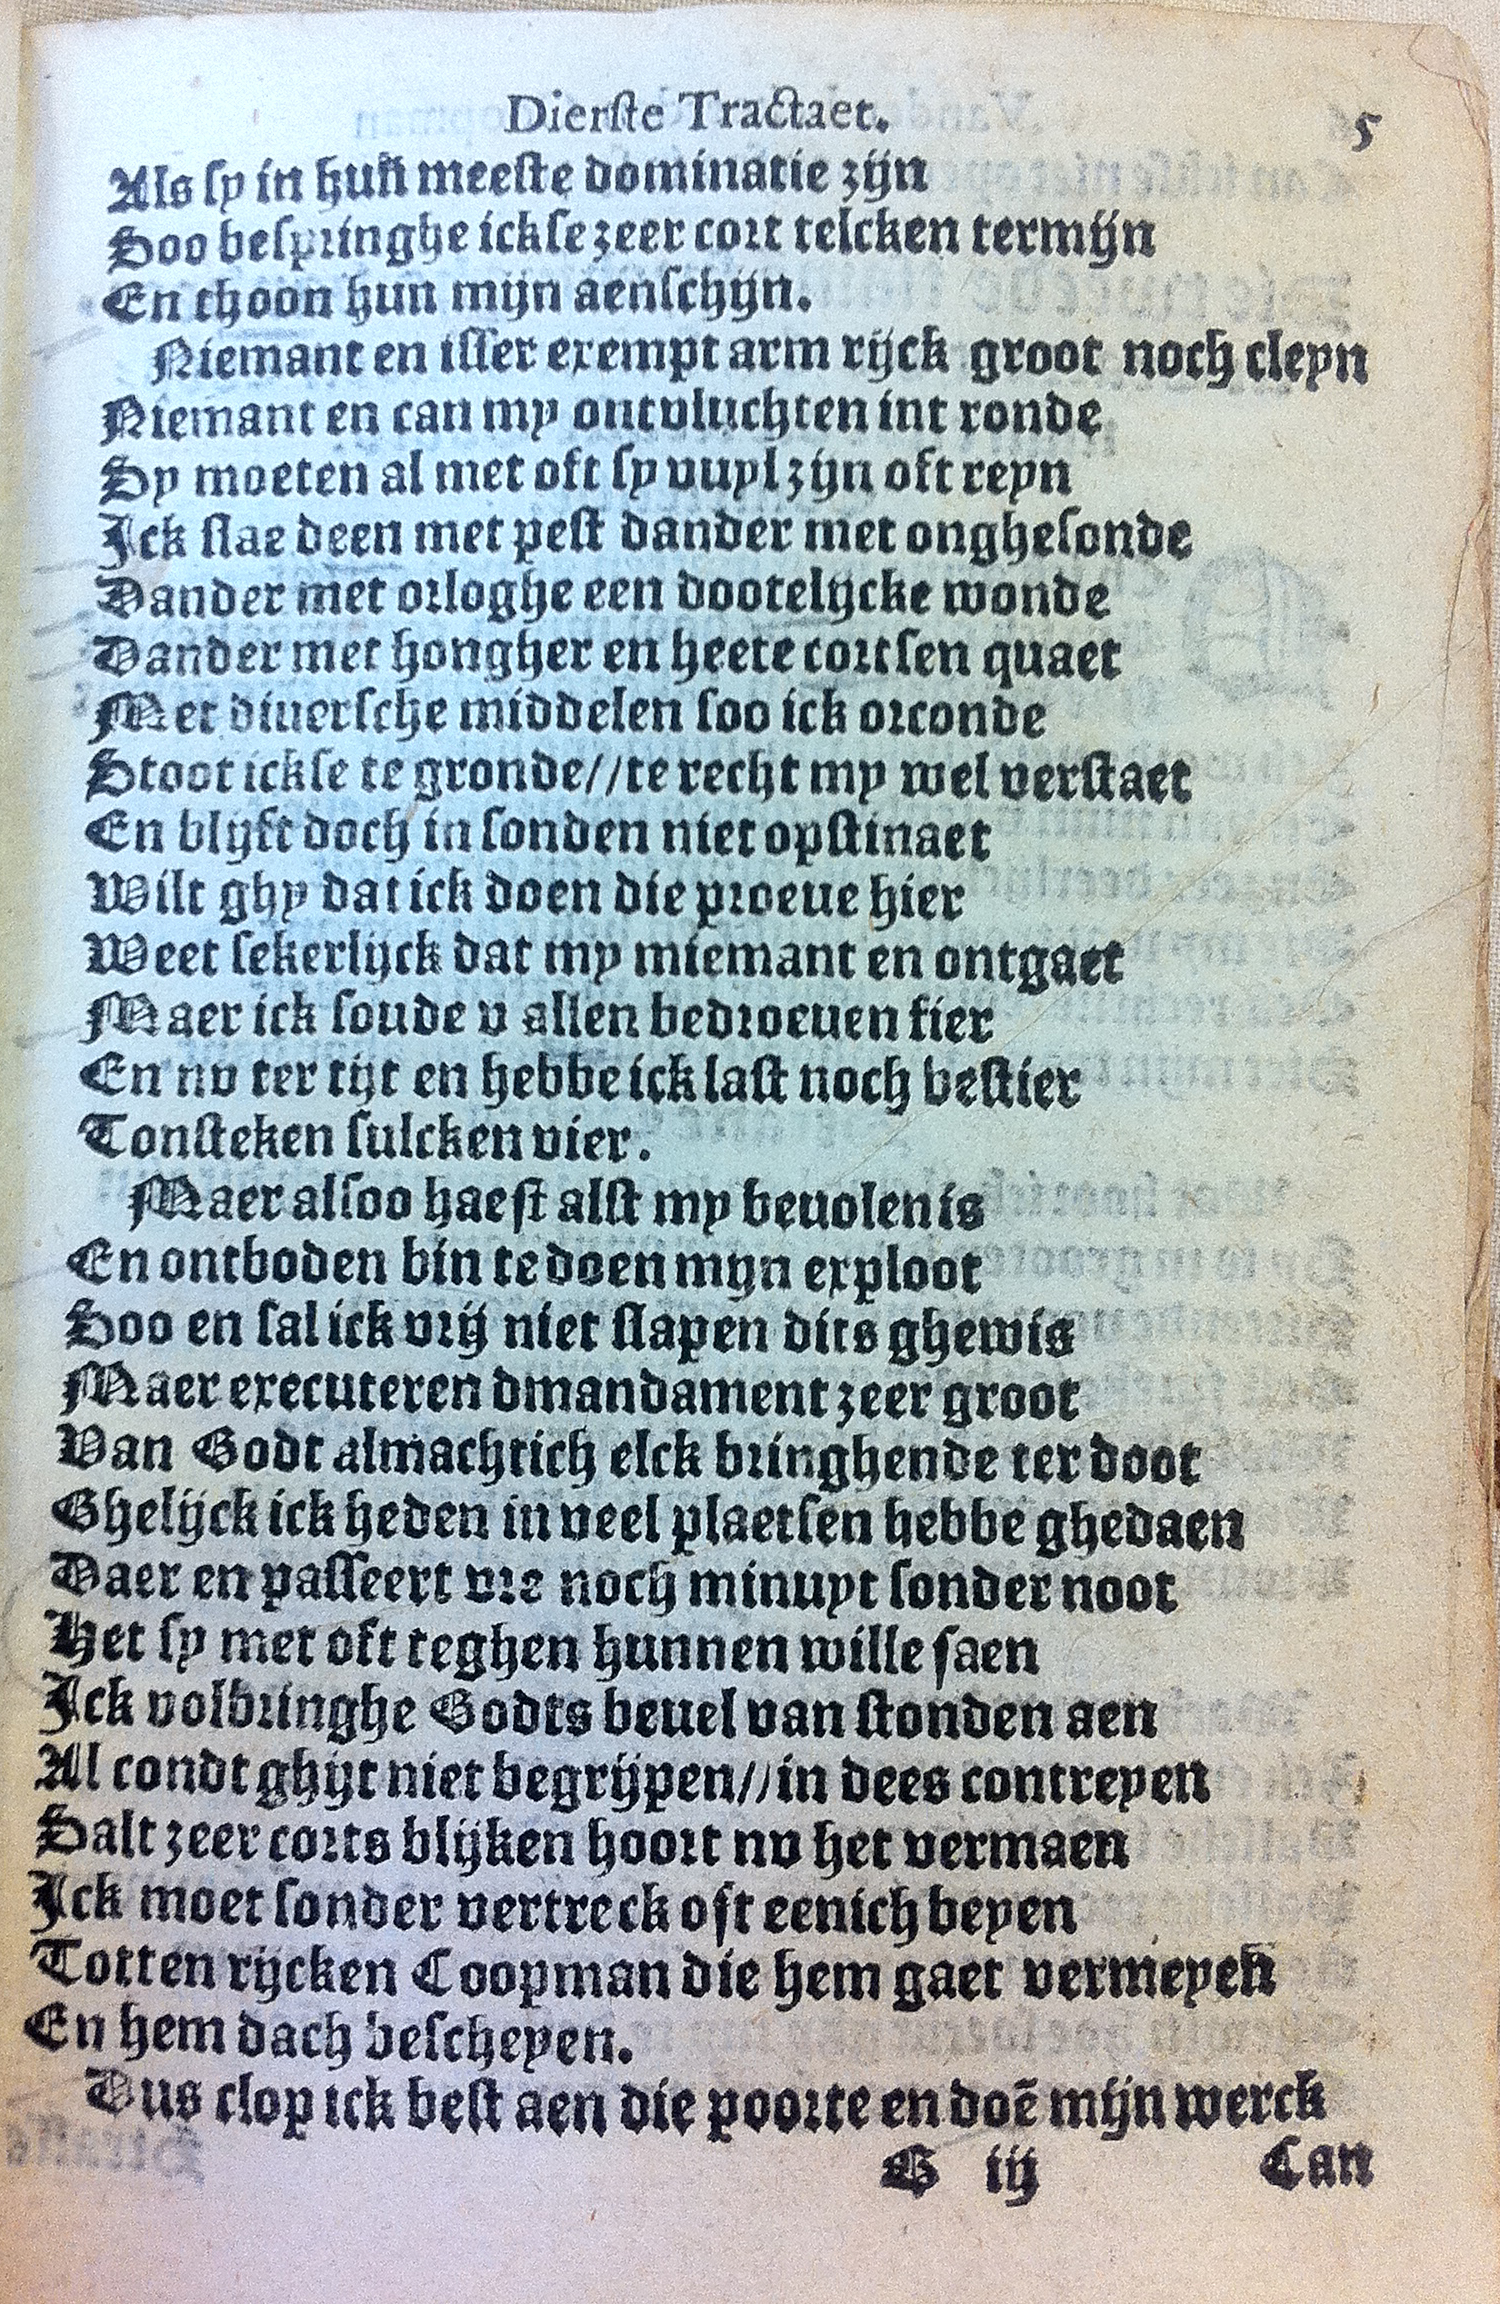 Dierste Tractaet. 5
Als sy in huñ meeste dominatie zijn
Soo bespringhe ickse zeer cort telcken termijn
En thoon hun mijn aenschijn.
Niemant en isser exempt arm rijck groot noch cleyn
Niemant en can my ontvluchten int ronde
Sy moeten al met oft sy vuyl zijn oft reyn
Ick slae deen met pest dander met onghesonde
Dander met orloghe een dootelijcke wonde
Dander met hongher en heete cortsen quaet
Met diuersche middelen soo ick orconde
Stoot ickse te gronde//te recht my wel verstaet
En blijft doch in sonden niet opstinaet
Wilt ghy dat ick doen die proeue hier
Weet sekerlijck dat my miemant en ontgaet
Maer ick soude v allen bedroeuen fier
En nv ter tijt en hebbe ick last noch bestier
Tonsteken sulcken vier.
Maer alsoo haest alst my beuolen is
En ontboden bin te doen mijn exploot
Soo en sal ick vrij niet slapen dits ghewis
Maer executeren dmandament zeer groot
Van Godt almachtich elck bringhende ter doot
Ghelijck ick heden in veel plaetsen hebbe ghedaen
Daer en passeert vre noch minuyt sonder noot
Het sy met oft teghen hunnen wille saen
Ick volbringhe Godts beuel van stonden aen
Al condt ghijt niet begrijpen//in dees contreyen
Salt zeer corts blijken hoort nv het vermaen
Ick moet sonder vertreck oft eenich beyen
Totten rijcken Coopman die hem gaet vermeyeñ
En hem dach bescheyen.
Dus clop ick best aen die poorte en doē mijn werck
G iij Can